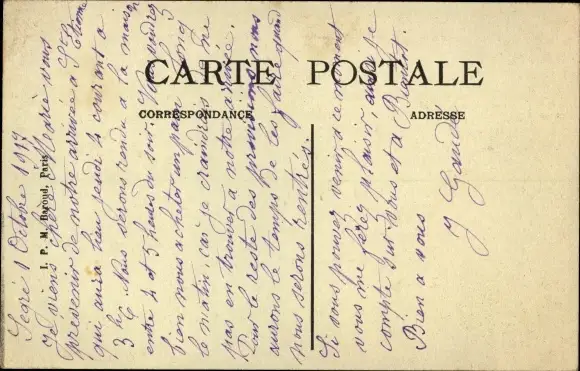 CARTE POSTALE
CORRESPONDANCE
ADRESSE
I. P. M. Baroud, Paris
Segré 1 Octobre 1919
Je viens cher Marie vous
prévenir de notre arrivée a St Etienne
qui aura lieu jeudi 2 courant a
3 h ½. Nous serons rendu a la maison
entre 4 et 5 heures du soir. Vous voudrez
bien nous acheter un pain long
le matin car je craindrais de ne
pas en trouver a notre arrivée.
Pour le reste des provisions nous
aurons le temps de les faire quand
nous serons rentrés.
Si vous pouvez venir a ce moment
vous me ferez plaisir, aussi je
compte sur vous et a Bientôt.
Bien a vous
J Gaudé